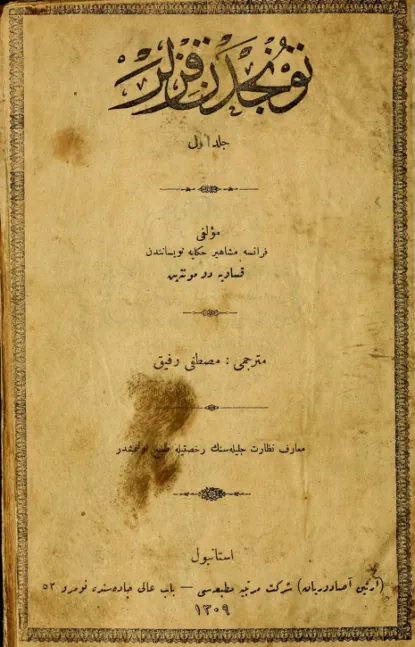 تونجدن قزلر
جلد اول
مؤلفی
فرانسه مشاهیر حکایه نویسانندن
قساویه دو مونتپین
مترجمی : مصطفی رفیق
معارف نظارت جلیله‌سنك رخصتیله طبع اولنمشدر
استانبول
(آرتین آصادوریان) شركت مرتبیه مطبعه‌سی — باب عالی جاده‌سنده نومرو ٥٣
١٣٠٩